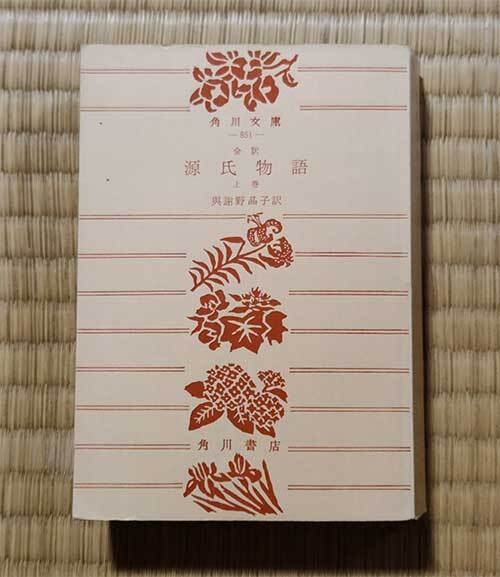 角川文庫
—851—
全訳
源氏物語
上巻
與謝野晶子訳
角川書店